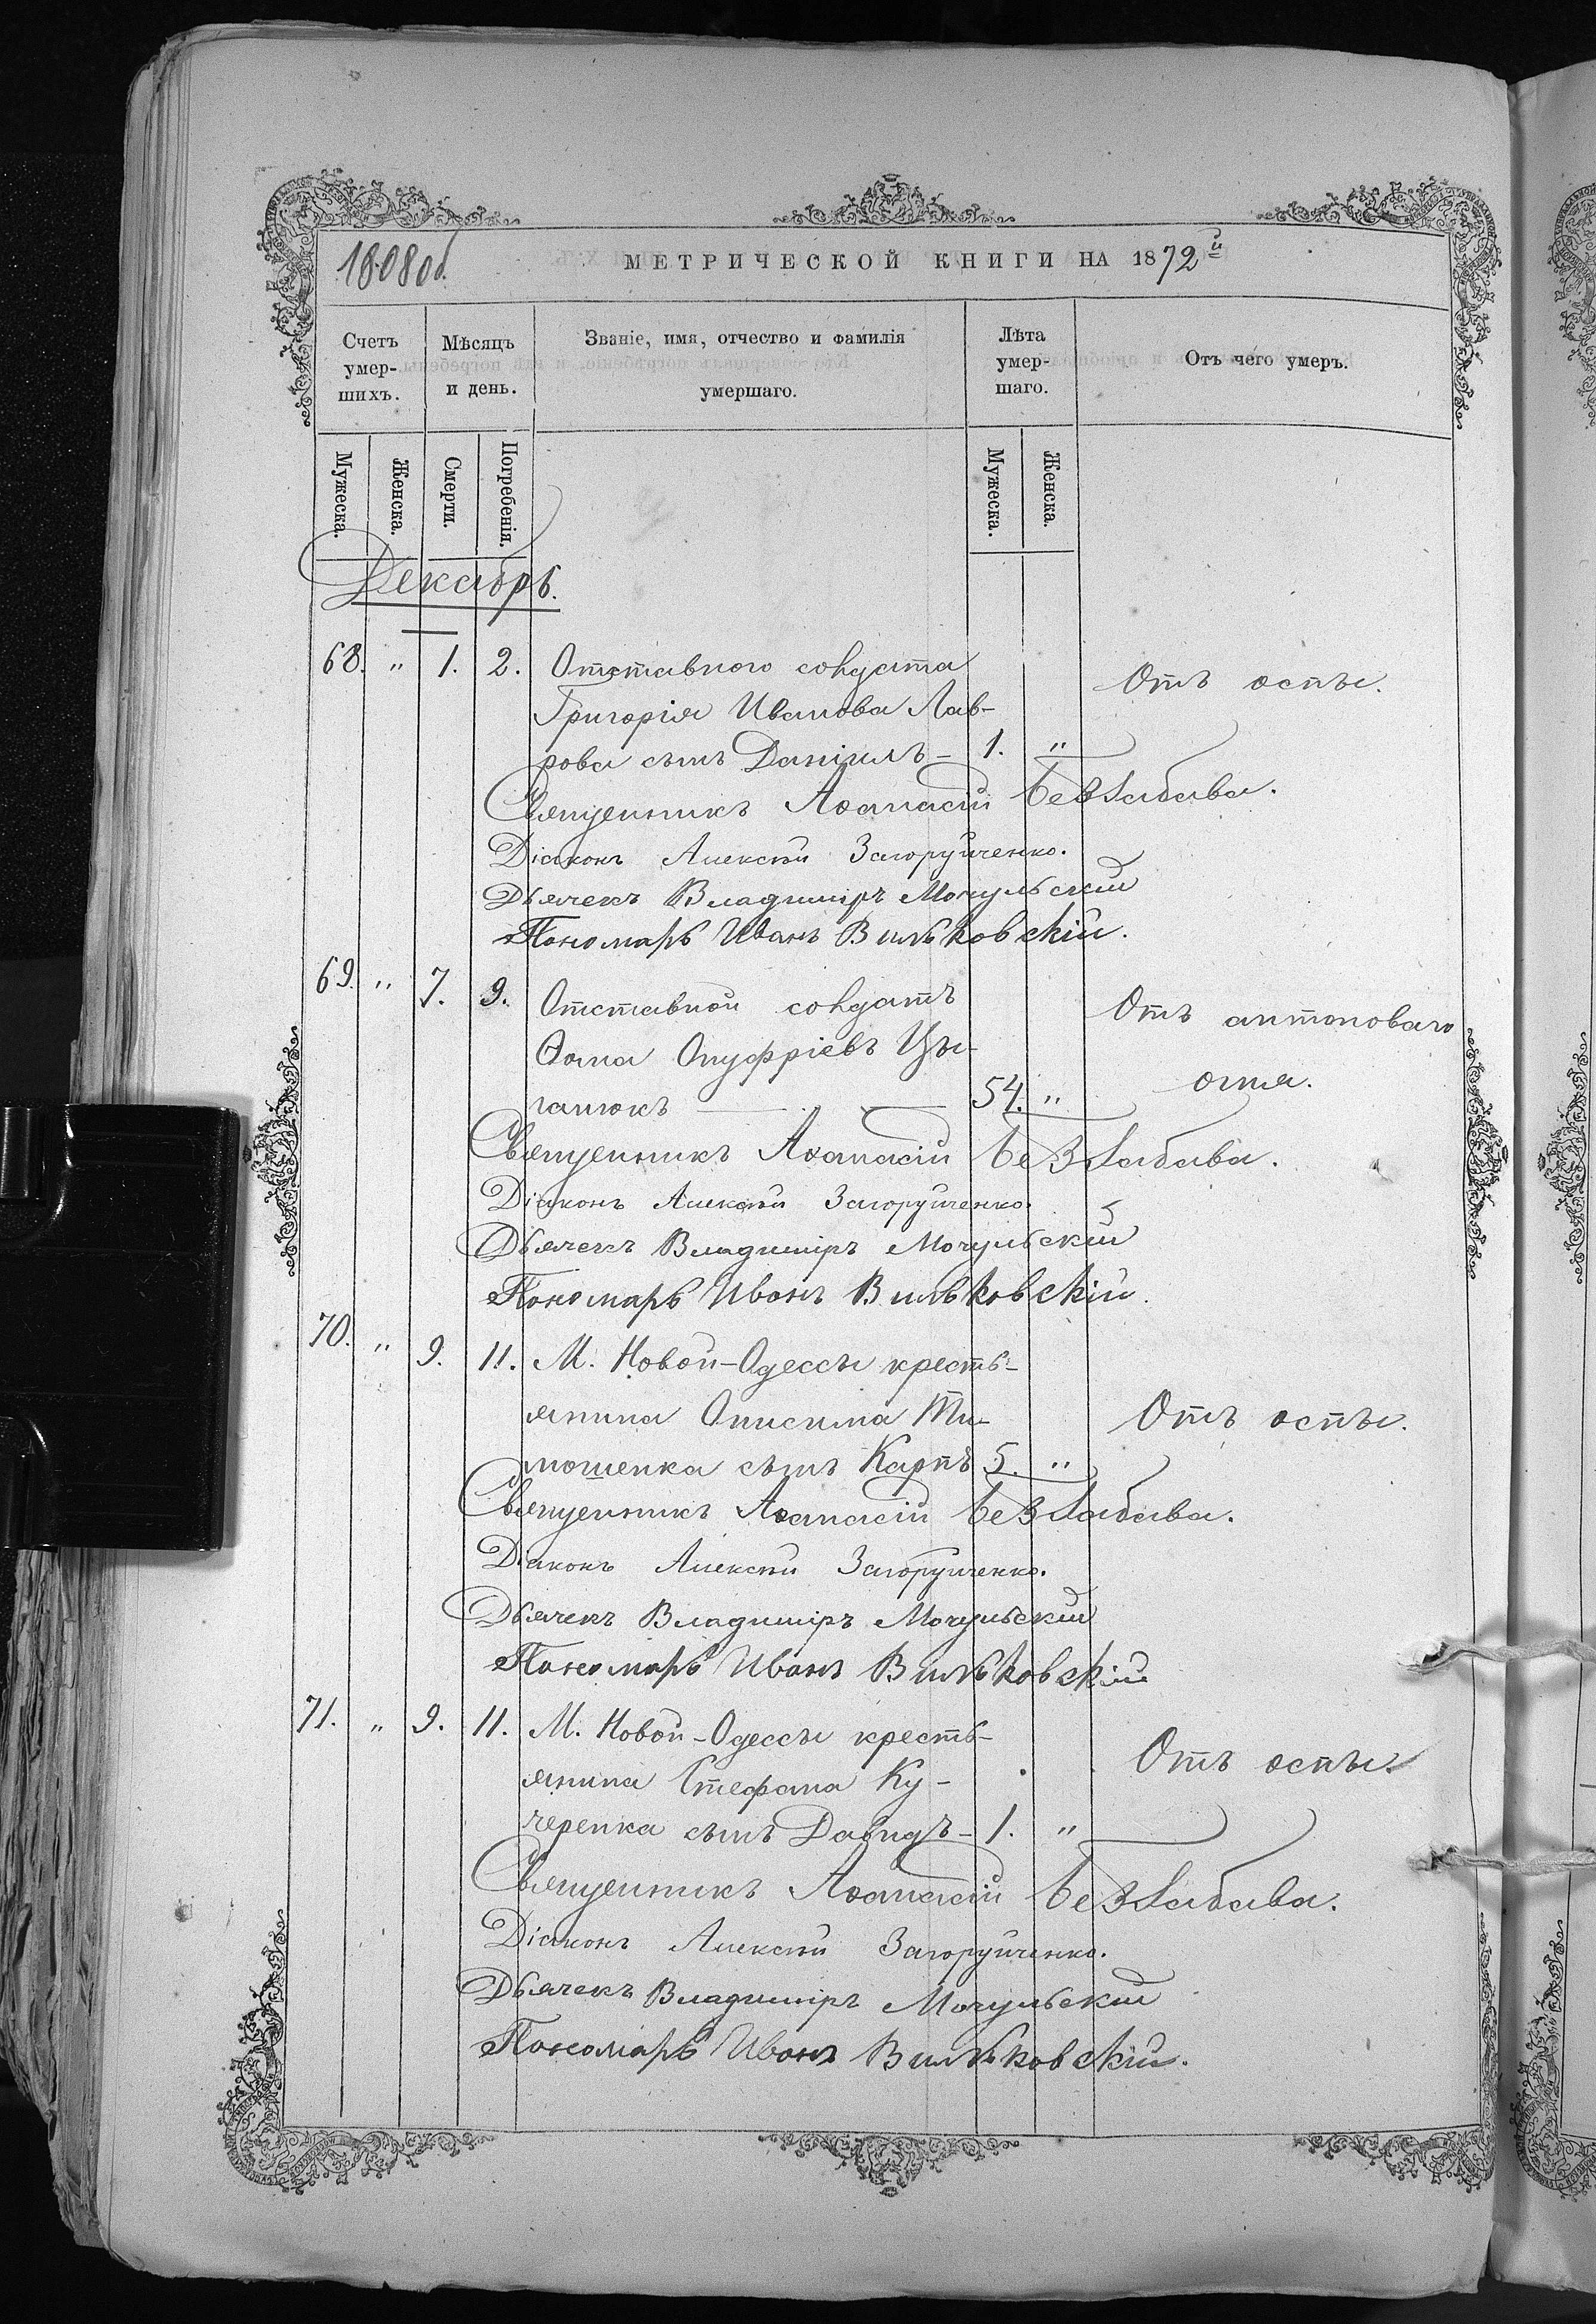 1808 об.
МЕТРИЧЕСКОЙ КНИГИ НА 1872й
Счетъ умер-шихъ.
Мѣсяцъ и день.
Званіе, имя, отчество и фамилія умершаго.
Лѣта умер-шаго.
Отъ чего умеръ.
Мужеска.
Женска.
Смерти.
Погребенія.
Мужеска.
Женска.
Декабрь.
68. " 1. 2. Отставного солдата
Григорія Иванова Лав-
рова сынъ Даніилъ - 1. "
Отъ оспы.
Священникъ Аѳанасій Беззабава.
Діаконъ Алексѣй Загоруйченко.
Дьячекъ Владиміръ Мочульскій
Пономарь Иванъ Вильковскій.
69. " 7. 9. Отставной солдатъ
Ѳома Онуфріевъ Цы-
ганюкъ — 54. "
Отъ антоноваго
огня.
Священникъ Аѳанасій Беззабава.
Діаконъ Алексѣй Загоруйченко.
Дьячекъ Владиміръ Мочульскій
Пономарь Иванъ Вильковскій.
70. " 9. 11. М. Новой-Одессы кресть-
янина Онисима Ти-
мошенка сынъ Карпъ 5. "
Отъ оспы.
Священникъ Аѳанасій Беззабава.
Діаконъ Алексѣй Загоруйченко.
Дьячекъ Владиміръ Мочульскій
Пономарь Иванъ Вильковскій
71. " 9. 11. М. Новой-Одессы кресть-
янина Стефана Ку-
черенка сынъ Давидъ - 1. "
Отъ оспы.
Священникъ Аѳанасій Беззабава.
Діаконъ Алексѣй Загоруйченко.
Дьячекъ Владиміръ Мочульскій
Пономарь Иванъ Вильковскій.